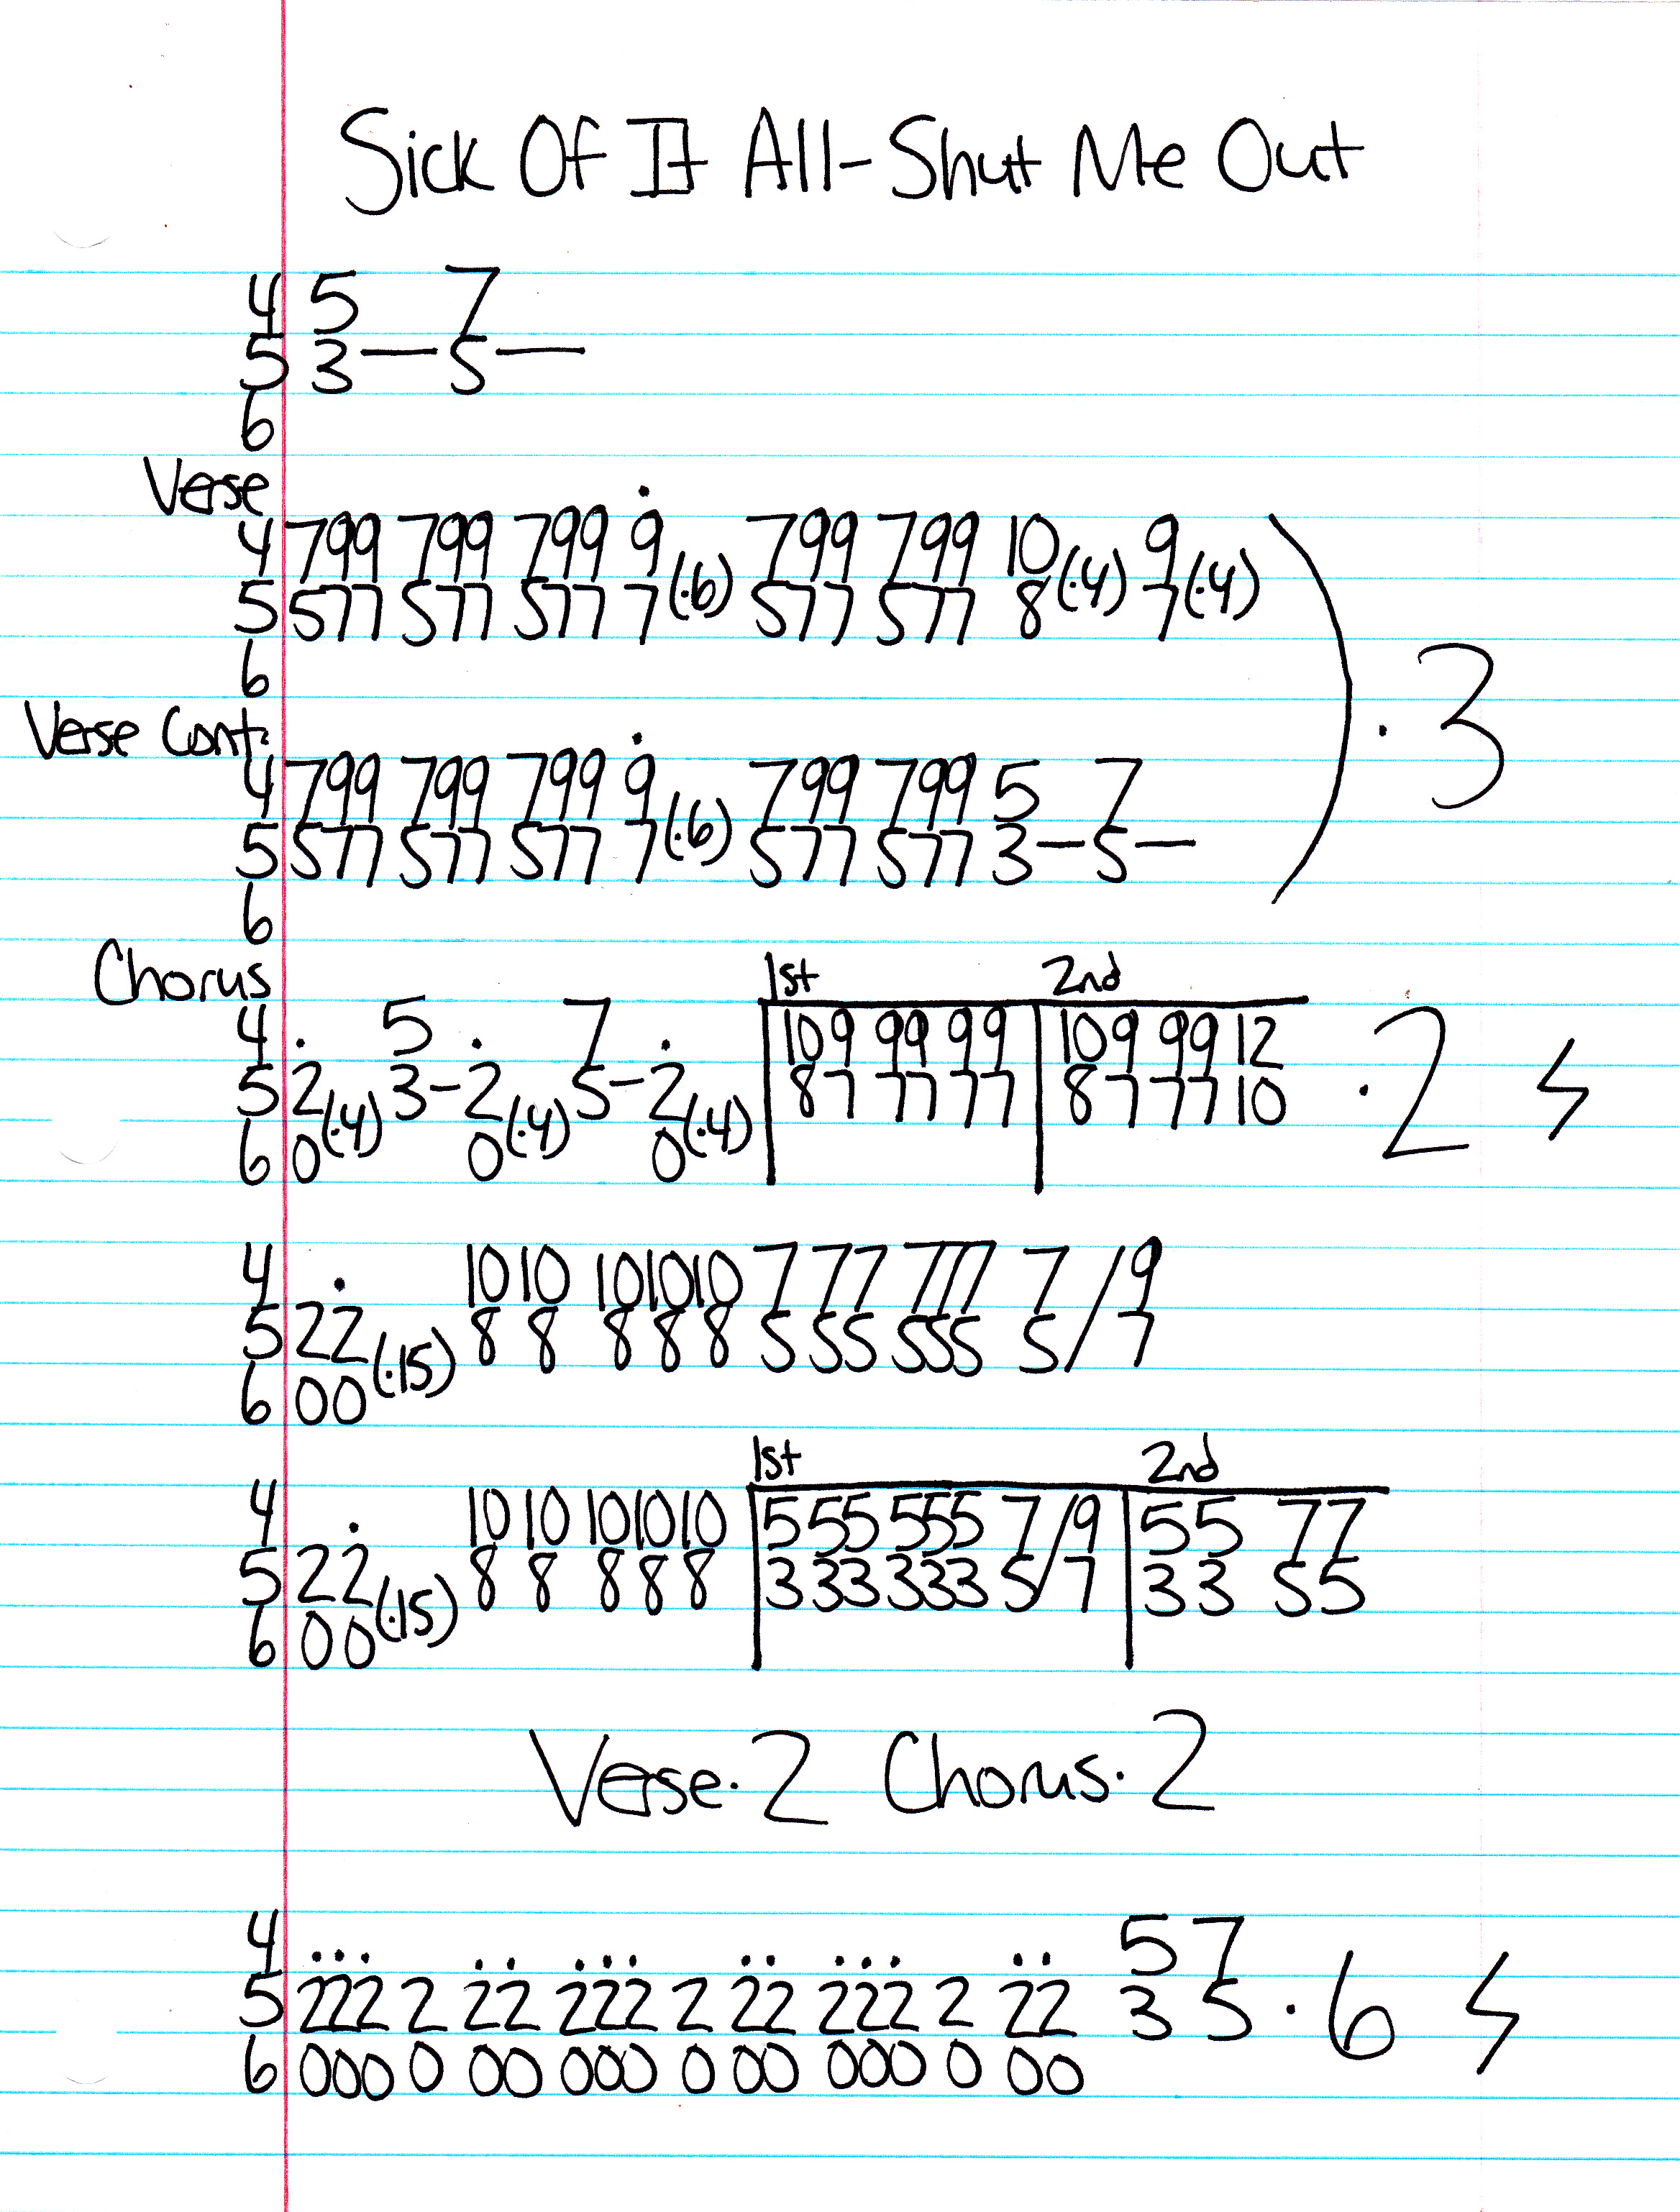 Sick Of It All - Shut Me Out
4 5 7
5 3 — 5 —
6
Verse
4 799 799 799 9 799 799 10 9
5 577 577 577 7 (·6) 577 577 8 (·4) 7 (·4)
6
) · 3
Verse Cont.
4 799 799 799 9 799 799 5 7
5 577 577 577 7 (·6) 577 577 3 — 5 —
6
Chorus 1st 2nd
4 . 5 . 7 . 109 99 99 109 99 12
5 2 (·4) 3 - 2 (·4) 5 - 2 (·4) 87 77 77 87 77 10 · 2
6 0 0 0
4 . 10 10 10 10 10 7 77 777 7 / 9
5 22 (·15) 8 8 8 8 8 5 55 555 5 / 7
6 00
1st 2nd
4 . 10 10 10 10 10 5 55 555 7 / 9 55 77
5 22 (·15) 8 8 8 8 8 3 33 333 5 / 7 33 55
6 00
Verse · 2 Chorus · 2
4 ... .. ... .. ... .. 5 7
5 222 2 22 222 2 22 222 2 22 3 5 · 6
6 000 0 00 000 0 00 000 0 00